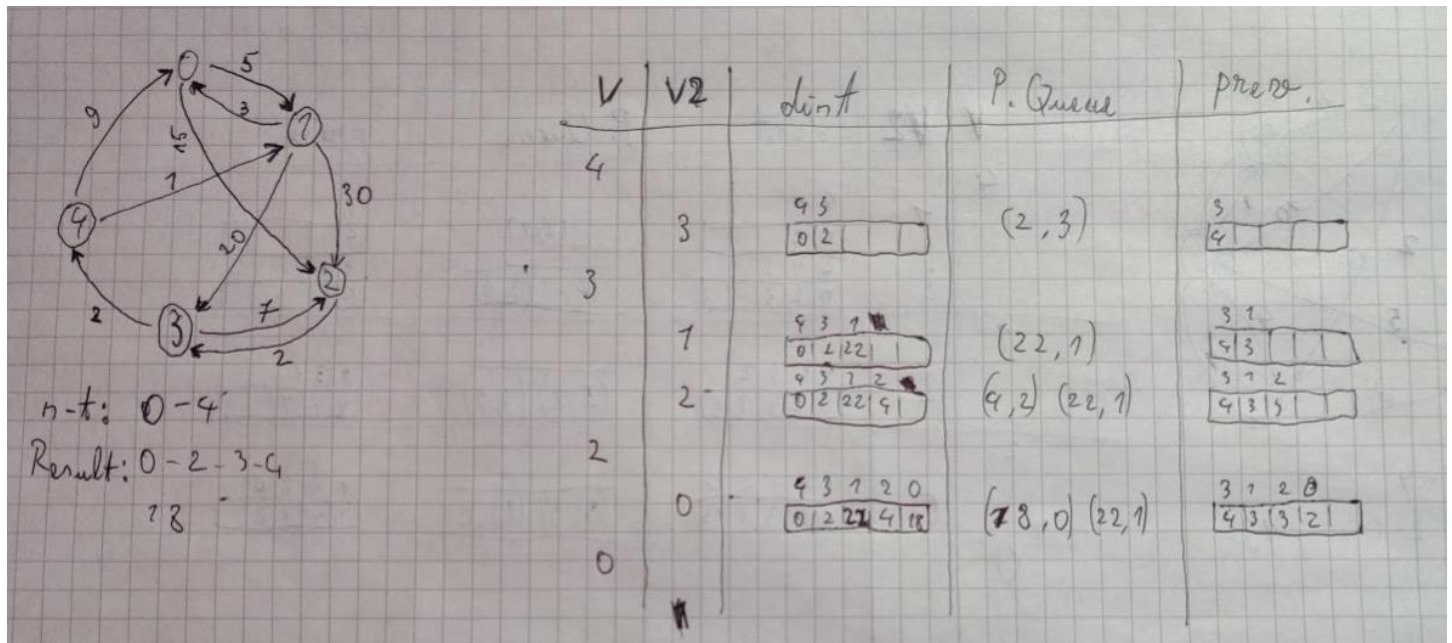 0 5
9 3 1
15
1 30
4
20
2
2 3 7
2
n-t: 0-4
Result: 0-2-3-4
18
V V2 dist P. Queue prev.
4
4 3 3
3 0 2 (2,3) 4
3
4 3 1 3 1
1 0 2 22 (22,1) 4 3
4 3 1 2 3 1 2
2 0 2 22 4 (4,2) (22,1) 4 3 3
2
4 3 1 2 0 3 1 2 0
0 0 2 22 4 18 (18,0) (22,1) 4 3 3 2
0